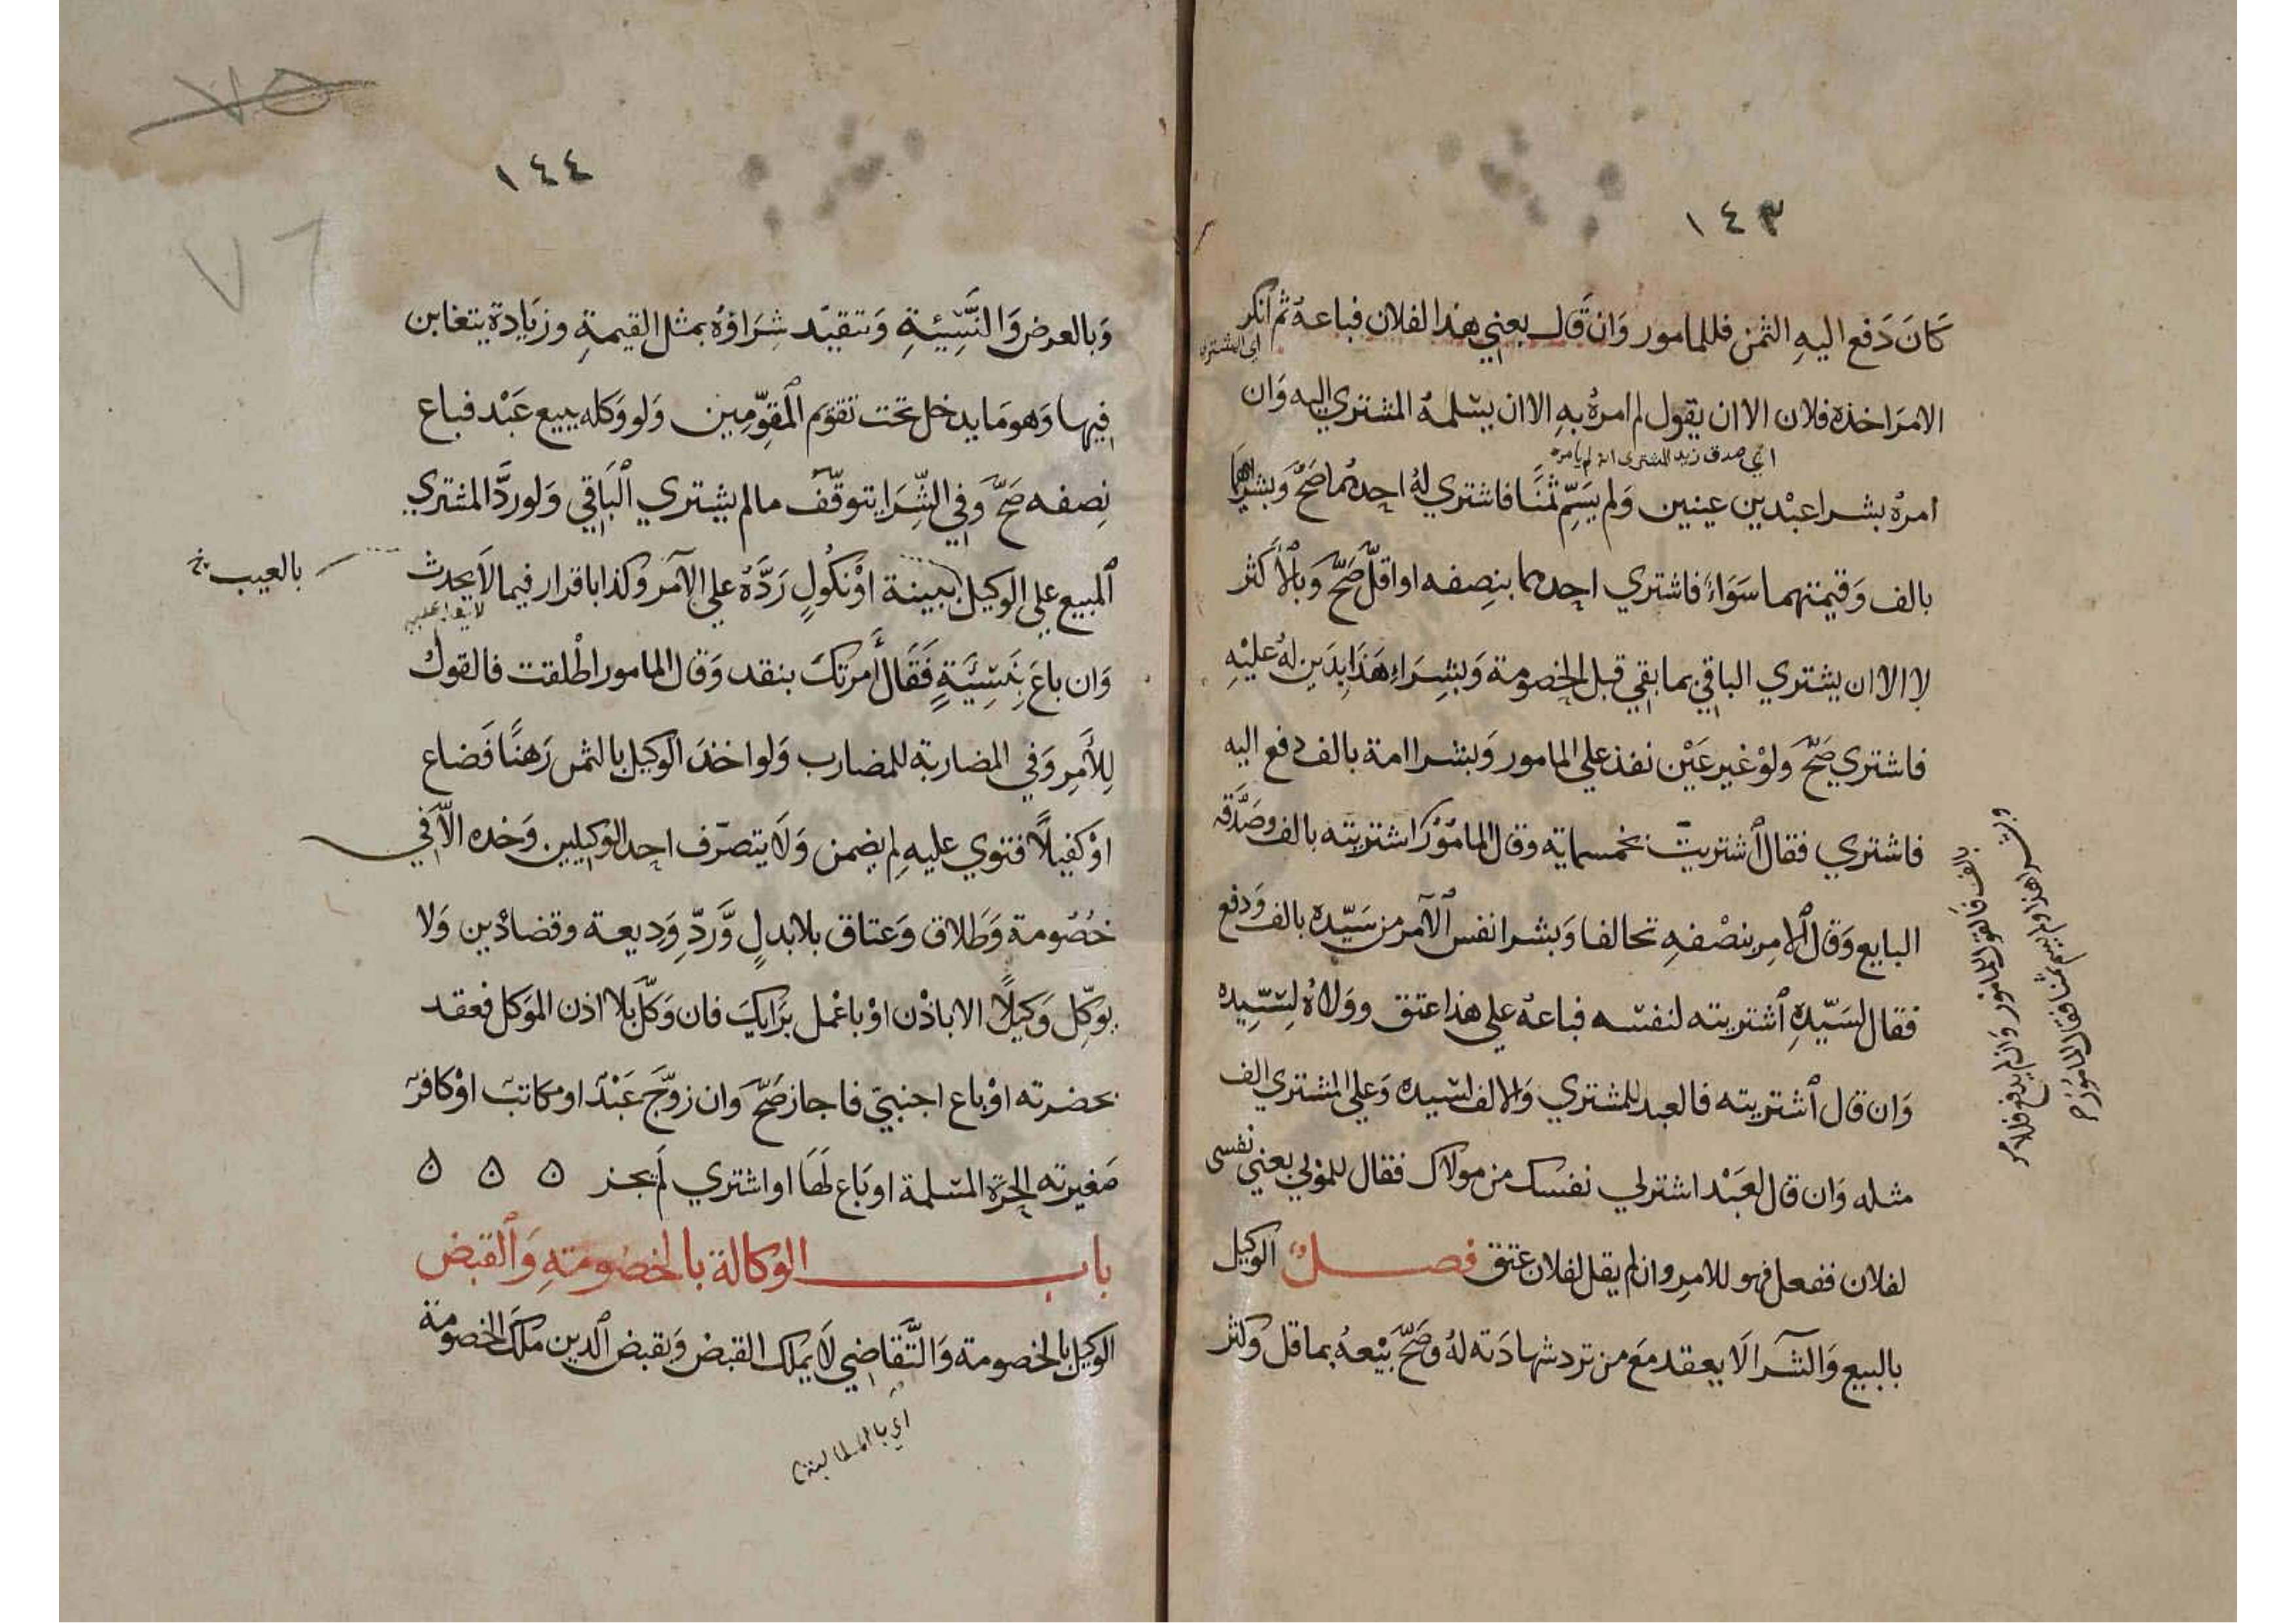 ١٤٣
كَانَ دَفع اليهِ الثمن فللمامور وَان قَال بعني هذا لفلان فباعهُ ثم انكر
اي المشتري
الامرَ اخذه فلان الا ان يقول لم امرهُ به الا ان يسّلمهُ المشتري اليه وَان
اي صدق زيد المشتري انه لم يامره
امرهُ بشرا عبْدين عينين وَلم يسَمِّ ثمنًا فاشتري لهُ احدهُما صَحَّ وَبشراهما
بالف وَقيمتهما سَوَاءً فاشتري احدهما بنِصفه او اقلّ صَحَّ وَبالأكثر
لا الا ان يشتري الباقي بما بقي قبل الخصومة وَبشِراءِ هَذَا بِدَين لهُ عليْهِ
فاشتري صَحَّ وَلوْ غير عَيْن نفذ علي المامور وَبشرا امة بالف دفع اليه
فاشتري فقال اُشتريت بخمسماية وقال المامُوْر اشتريته بالف وصَدَّقه
البايع وَقال اُلامِر بنصْفهِ تحالفا وَبشرا نفس اُلآمر من سَيّده بالف وَدفع
فقال لسَيّدهِ اُشتريته لنفسّه فباعهُ علي هذا عتق وولاؤهُ لسَيّدِه
وَان قال اُشتريته فالعبد للمشتري وَالالف لسَيده وَعلي المشتري الف
مثله وَان قال لعَبْد اشتر لي نفسك من مولاك فقال للمَوْلي بعني نفسى
لفلان ففعل فهو للامِر وان لم يقل لفلان عتق فصـــل الوكيل
بالبيع وَالشّرا لَا يعقد مَع من ترد شهادَته لهُ وصَحَّ بيْعهُ بما قل وكثر
وبشرا هذا ولم يسم ثمنا فقال المامُور
بالف فالقول للمامُور وَان لم يدفع فللامر
١٤٤
٧٥
٧٦
وَبالعرض وَالنَّسِّيئةِ وَتتقيّد شِرَاؤهُ بمثل القيمةِ وزيَادة يتغابن
فيها وَهو مَا يدخل تحت تقوّيم المقوّمِين وَلو وَكله ببيع عَبْد فباع
نِصفه صَحَّ وَفي الشِّرَا يتوقّف مالم يشتري الباقي وَلوردَّ المشتري
المبيع علي الوكيل ببينة اوْ نكُولٍ رَدَّهُ علي الآمر وكذا باقرار فيما لَا يحدث
بالعيب خ
وَان باعَ بنَسِّيئَةٍ فَقَال أمرتكَ بنقد وَقال المامور اطْلقت فالقولُ
لِلأَمِر وَفي المضاربة للمضارب وَلو اخذ الوكيل بالثمن رَهنًا فَضاع
اوْ كفيلاً فتوي عليه لم يضمن وَلَا يتصرّف احد الوَكيلين وَحده الاّ في
خُصُومة وَطَلاق وَعتاق بلا بدلٍ وَّرَدِّ وَدِيعة وقضاءْ دَين وَلا
يوكِّل وَكيلاً الا باذْن اوْ باعْمل برَايكَ فان وَكّل بلا اذن الموَكل فعقد
بحضرته اوْ باع اجنبيّ فاجاز صَحَّ وَان زوّجَ عَبْد او مكاتب اوْ كافر
صَغيرته الحرّة المسّلمة او بَاع لَهَا او اشتري لم يجز ه ه ه
بابـــ الوكالة بالخصُومَةِ وَالقبض
الوكيل بالخصومة وَالتَّقاضي لَا يملك القبض وَبقبض الدين ملكَ الخصومة
اي بالمطالبة